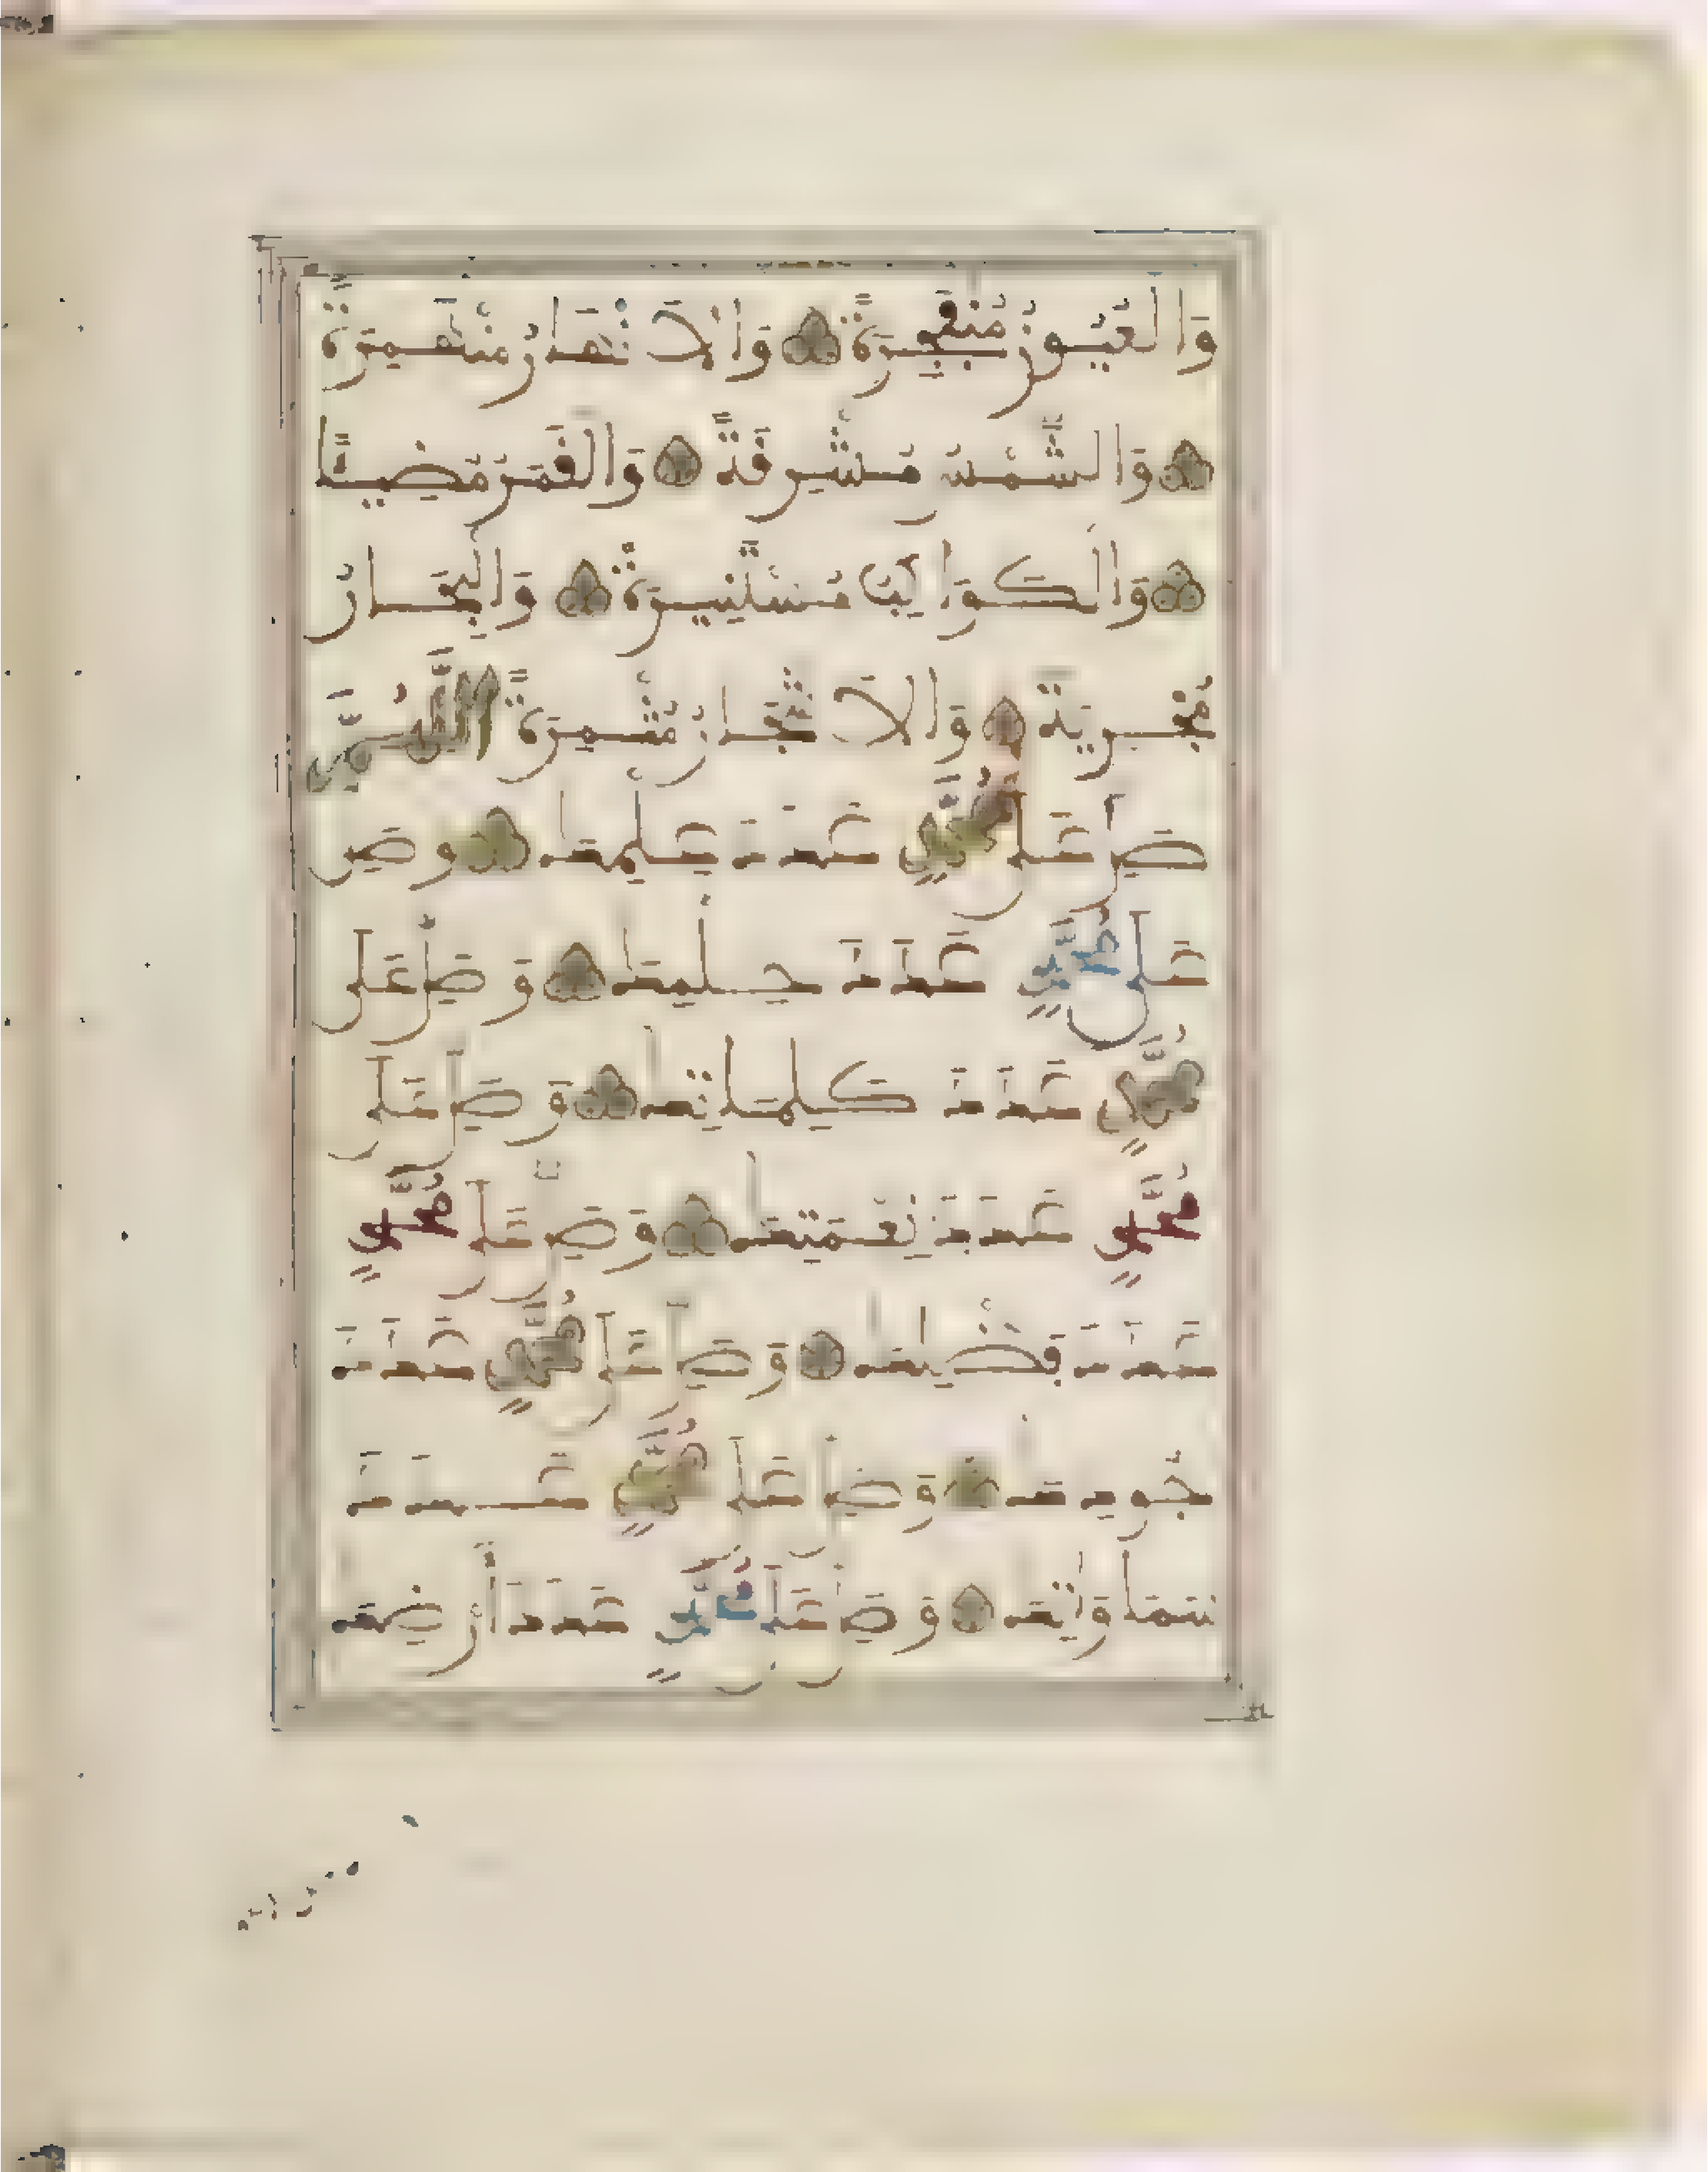 وَالْعُيُونُ مُنْفَجِرَةً وَالْأَنْهَارُ مُنْهَمِرَةً
وَالشَّمْسُ مُشْرِقَةً وَالْقَمَرُ مُضِيئًا
وَالْكَوَاكِبُ مُسْتَنِيرَةً وَالْبِحَارُ
مُجْرِيَةً وَالْأَشْجَارُ مُثْمِرَةً اللَّهُمَّ
صَلِّ عَلَى مُحَمَّدٍ عَدَدَ عِلْمِكَ وَصَلِّ
عَلَى مُحَمَّدٍ عَدَدَ حِلْمِكَ وَصَلِّ عَلَى
مُحَمَّدٍ عَدَدَ كَلِمَاتِكَ وَصَلِّ عَلَى
مُحَمَّدٍ عَدَدَ نِعْمَتِكَ وَصَلِّ عَلَى مُحَمَّدٍ
عَدَدَ فَضْلِكَ وَصَلِّ عَلَى مُحَمَّدٍ عَدَدَ
جُودِكَ وَصَلِّ عَلَى مُحَمَّدٍ عَدَدَ
سَمَاوَاتِكَ وَصَلِّ عَلَى مُحَمَّدٍ عَدَدَ أَرْضِكَ